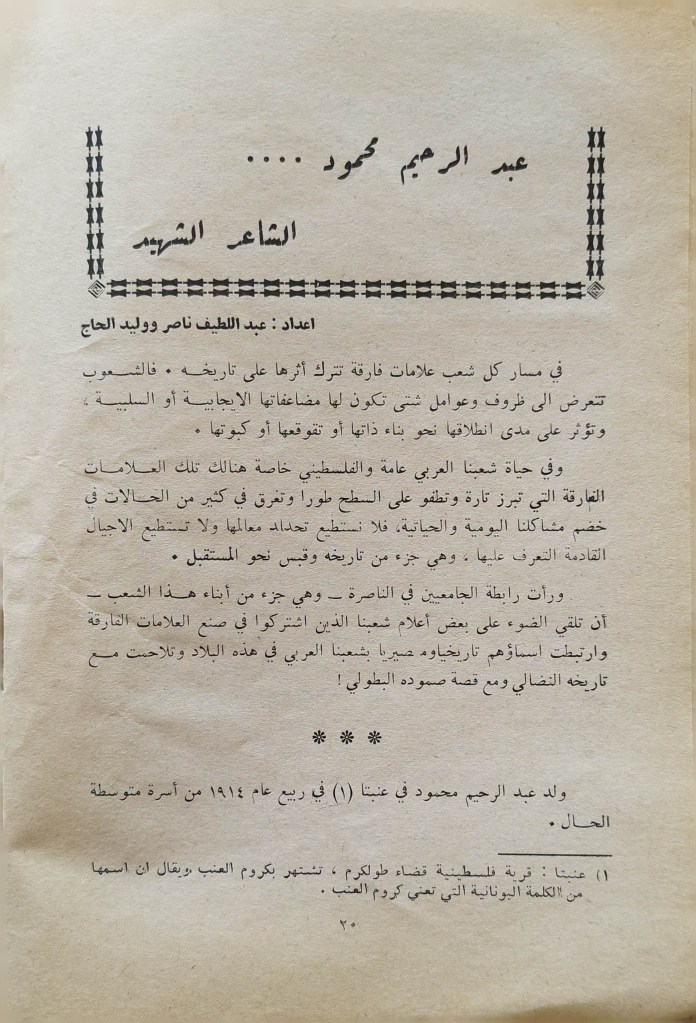 عبد الرحيم محمود ....
الشاعر الشهيد
اعداد : عبد اللطيف ناصر ووليد الحاج
في مسار كل شعب علامات فارقة تترك أثرها على تاريخه . فالشعوب
تتعرض الى ظروف وعوامل شتى تكون لها مضاعفاتها الايجابية أو السلبية ،
وتؤثر على مدى انطلاقها نحو بناء ذاتها أو تقوقعها أو كبوتها .
وفي حياة شعبنا العربي عامة والفلسطيني خاصة هنالك تلك العلامات
الفارقة التي تبرز تارة وتطفو على السطح طورا وتغرق في كثير من الحالات في
خضم مشاكلنا اليومية والحياتية، فلا نستطيع تحداد معالمها ولا تستطيع الاجيال
القادمة التعرف عليها . وهي جزء من تاريخه وقبس نحو المستقبل .
ورأت رابطة الجامعيين في الناصرة ــ وهي جزء من أبناء هذا الشعب ــ
أن تلقي الضوء على بعض أعلام شعبنا الذين اشتركوا في صنع العلامات الفارقة
وارتبطت اسماؤهم تاريخياوم صيريا بشعبنا العربي في هذه البلاد وتلاحمت مع
تاريخه النضالي ومع قصة صموده البطولي !
* * *
ولد عبد الرحيم محمود في عنبتا (١) في ربيع عام ١٩١٤ من أسرة متوسطة
الحال .
١) عنبتا : قرية فلسطينية قضاء طولكرم ، تشتهر بكروم العنب .ويقال ان اسمها
من "الكلمة اليونانية التي تعني كروم العنب .
٢٠